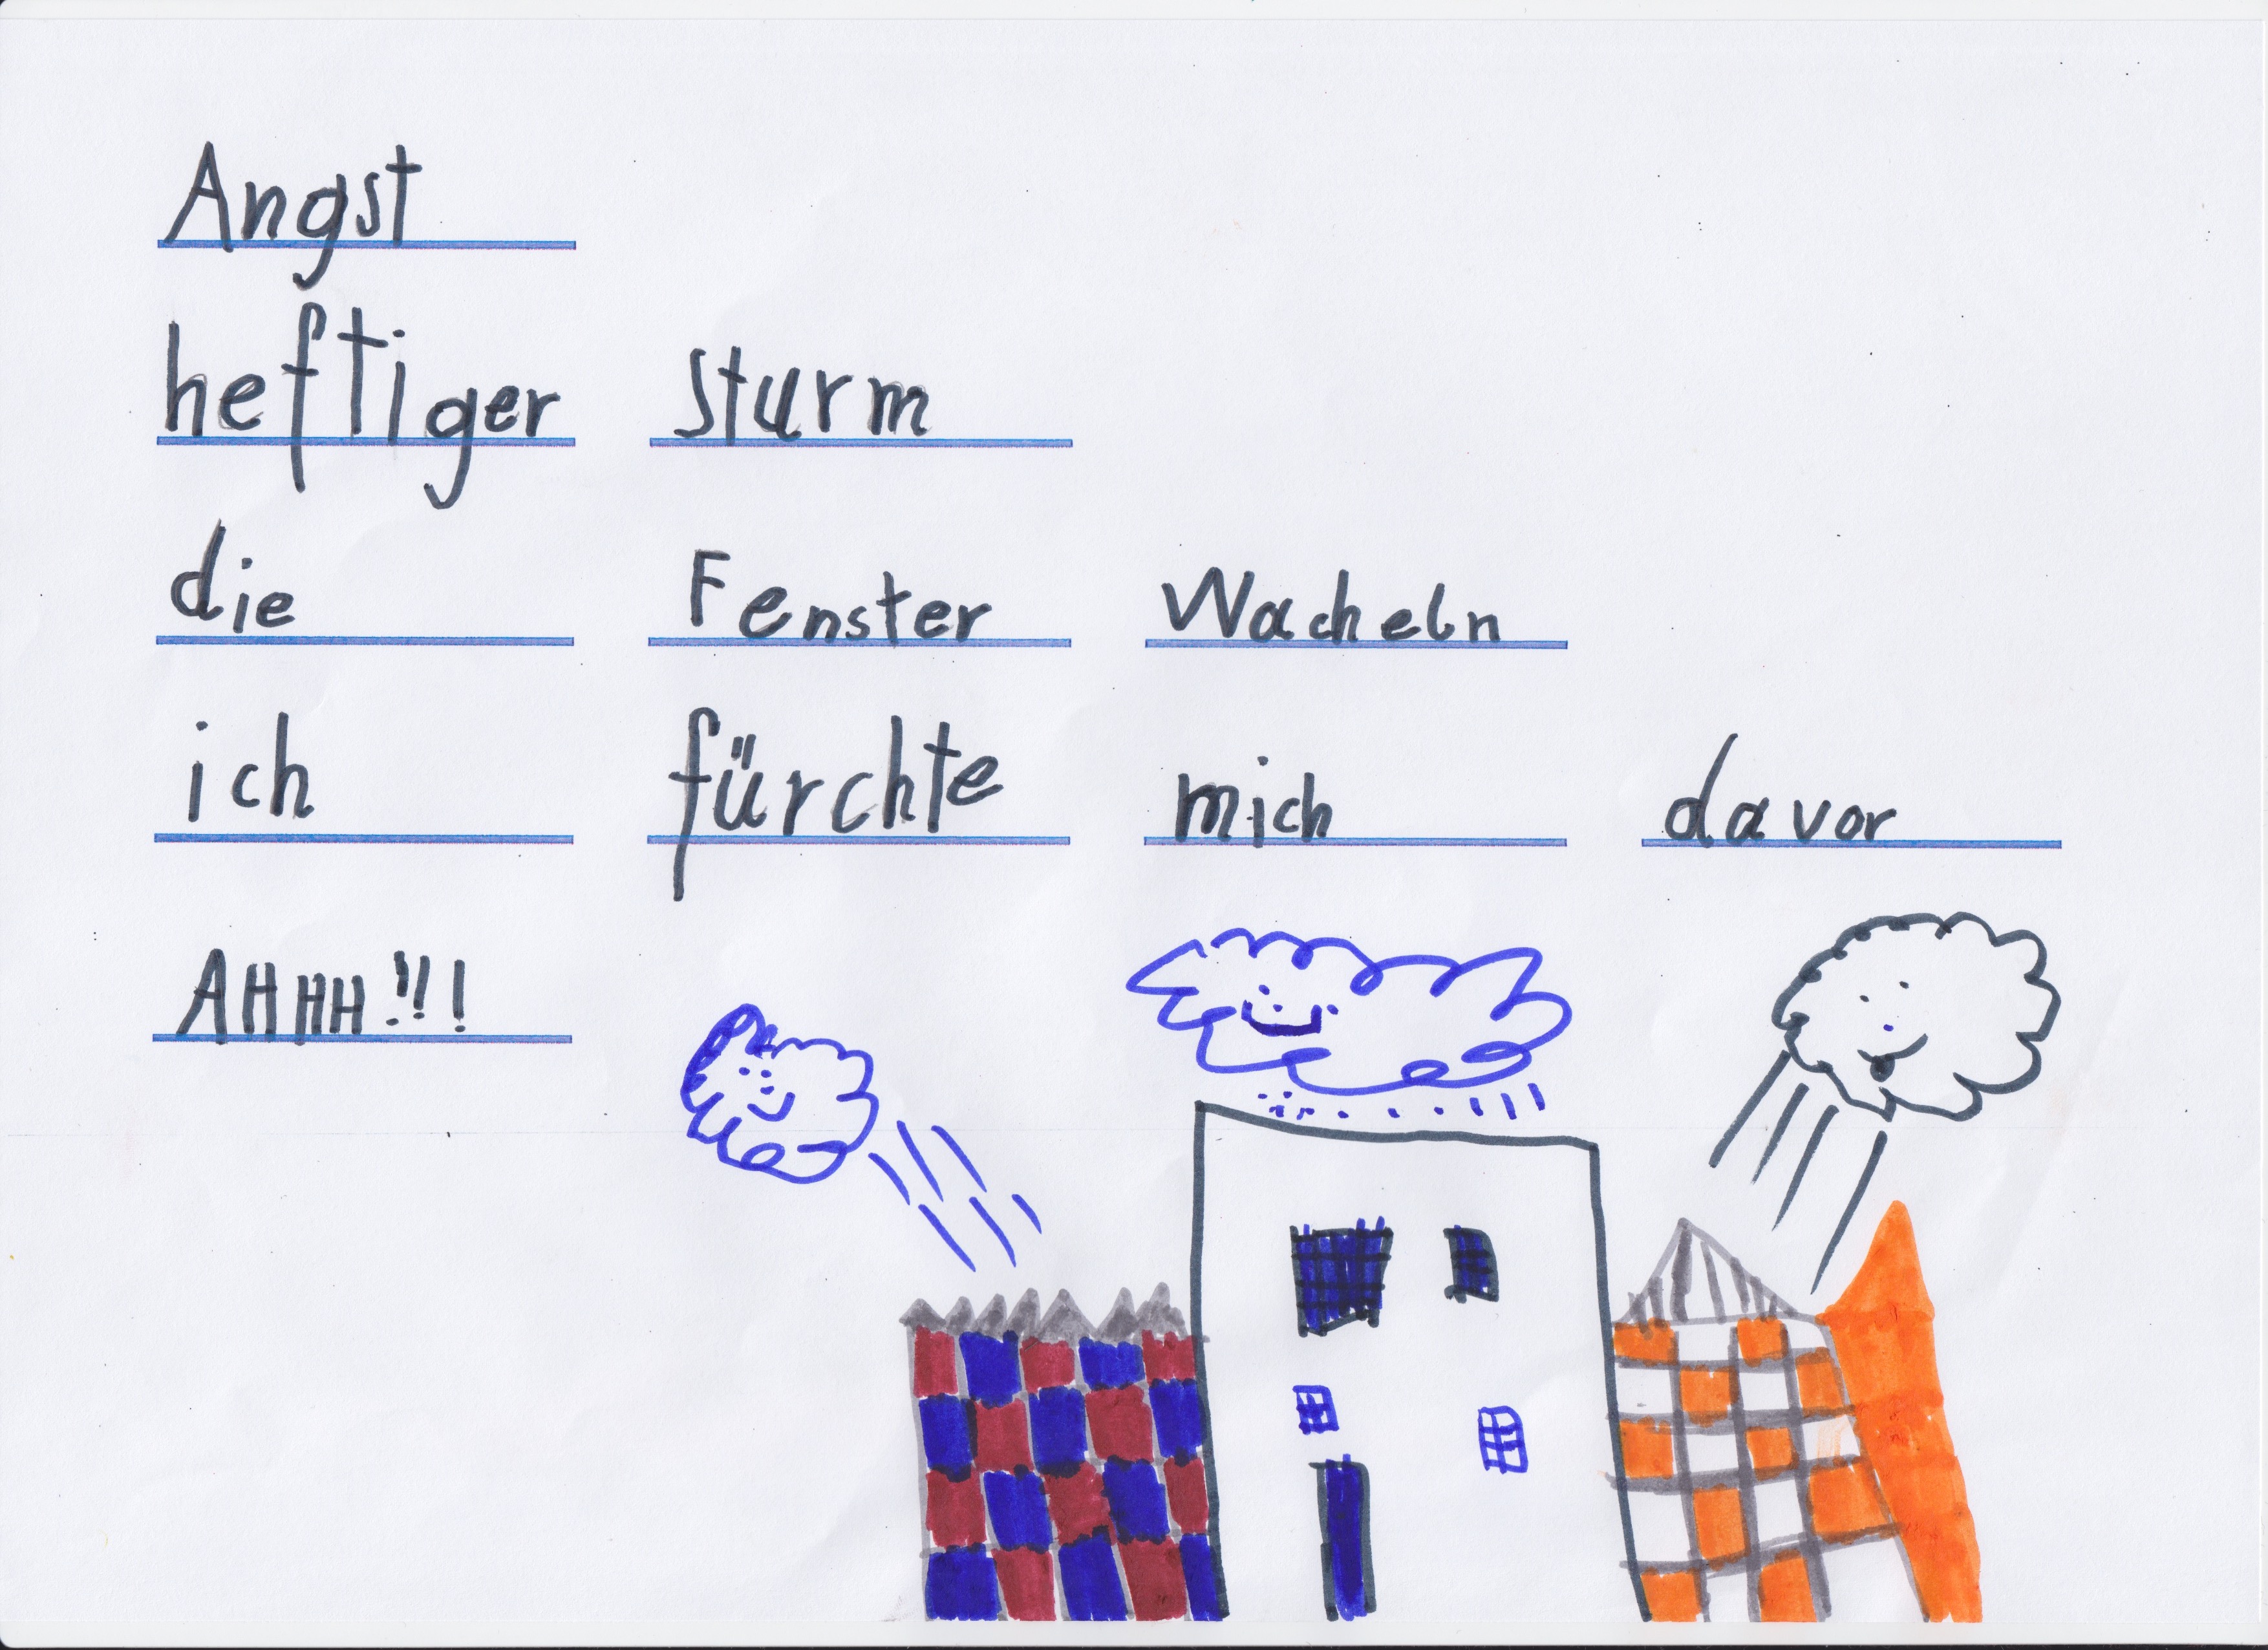 Angst
heftiger Sturm
die Fenster Wacheln
ich fürchte mich davor
AHHH!!!